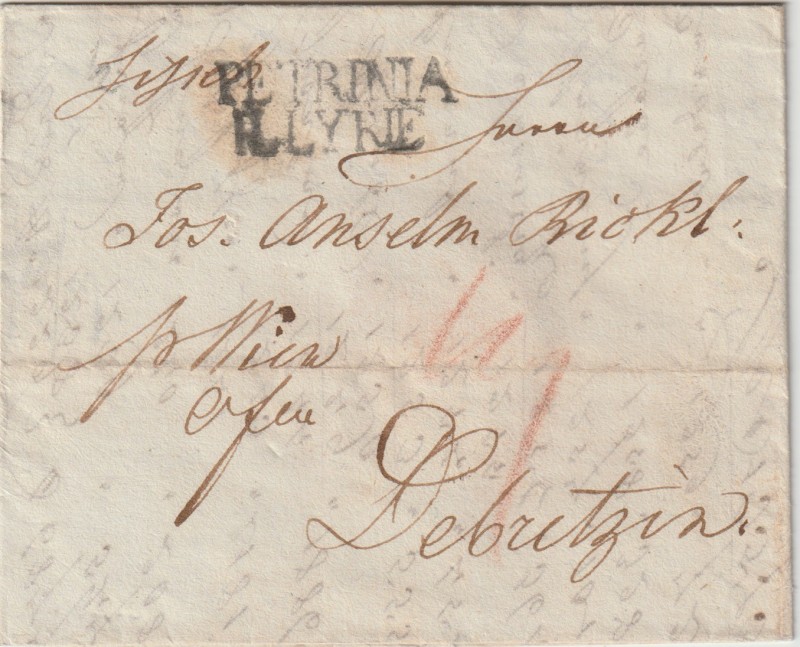 Sissek
PETRINIA
ILLYRIE
Herrn
Jos. Anselm Rickl.
pr Wien
Ofen
Debretzin.